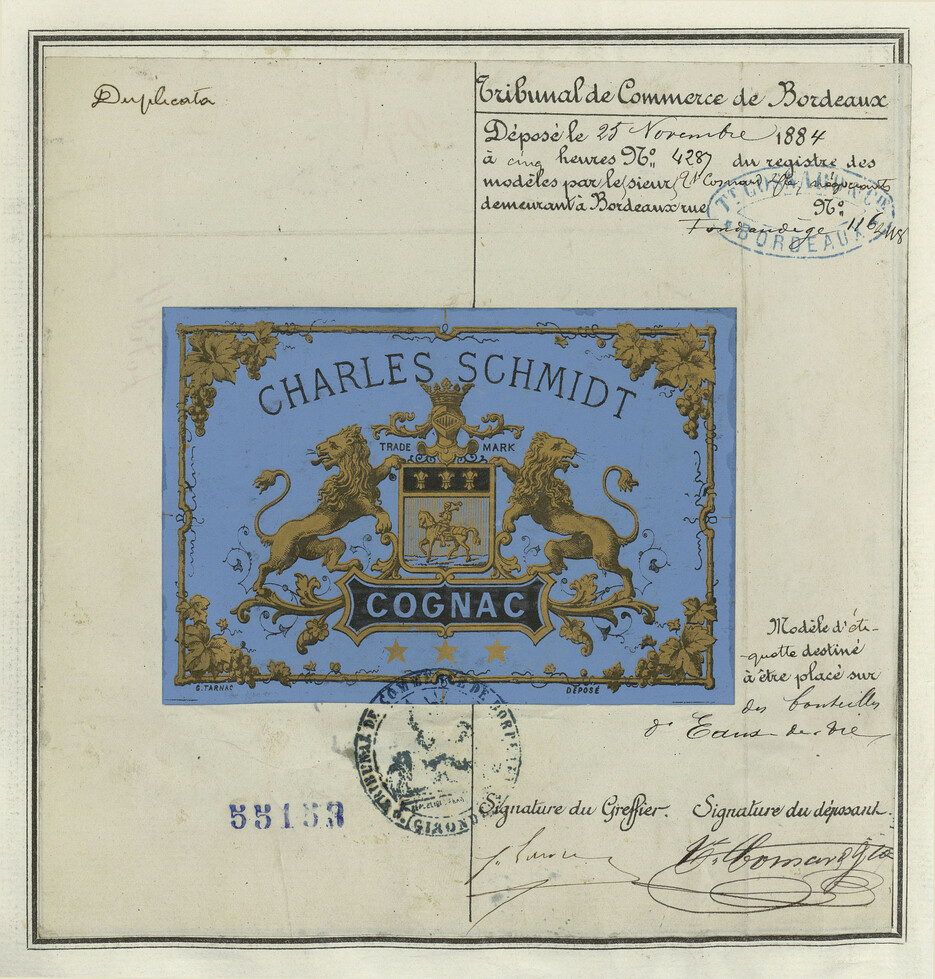 Duplicata
Tribunal de Commerce de Bordeaux
Déposé le 25 Novembre 1884
à cinq heures No. 4287 du registre des
modèles par le sieur négociants
demeurant à Bordeaux rue No.
Fondaudège 116
BORDEAUX
CHARLES SCHMIDT
TRADE MARK
COGNAC
G. TARNAC
DÉPOSÉ
Modèle d'éti-
quette destiné
à être placé sur
des bouteilles
d'Eaux-de-vie
TRIBUNAL DE COMMERCE DE BORDEAUX
(GIRONDE)
55153
Signature du Greffier. Signature du déposant.